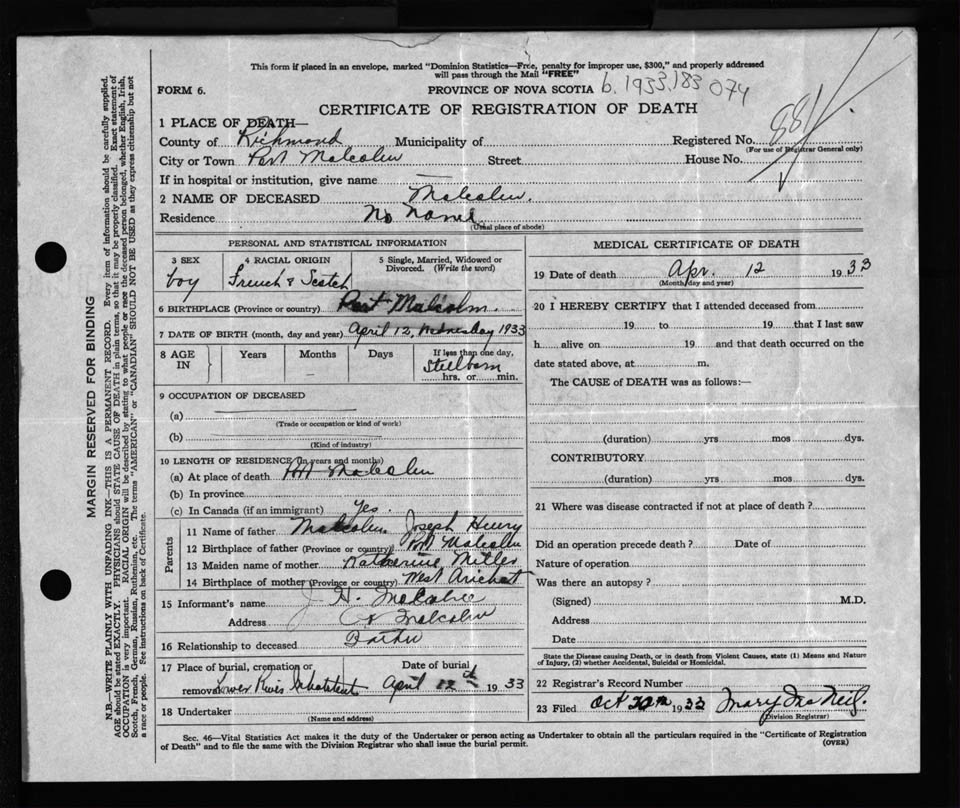 This form if placed in an envelope, marked "Dominion Statistics—Free, penalty for improper use, $300," and properly addressed
will pass through the Mail "FREE"
FORM 6.
PROVINCE OF NOVA SCOTIA b. 1933.183 074
CERTIFICATE OF REGISTRATION OF DEATH
1 PLACE OF DEATH—
County of Richmond Municipality of Registered No. 881
(For use of Registrar General only)
City or Town Port Malcolm Street House No.
If in hospital or institution, give name —
2 NAME OF DECEASED Malcolm.
Residence No Name
(Usual place of abode)
PERSONAL AND STATISTICAL INFORMATION
3 SEX
boy
4 RACIAL ORIGIN
French & Scotch
5 Single, Married, Widowed or
Divorced. (Write the word)
6 BIRTHPLACE (Province or country) Port Malcolm.
7 DATE OF BIRTH (month, day and year) April 12, Wednesday 1933
8 AGE
IN
Years
Months
Days
If less than one day,
Steelborn
hrs. or min.
9 OCCUPATION OF DECEASED
(a)
(Trade or occupation or kind of work)
(b)
(Kind of industry)
10 LENGTH OF RESIDENCE (In years and months)
(a) At place of death Port Malcolm
(b) In province
(c) In Canada (if an immigrant) Yes.
Parents
11 Name of father Malcolm, Joseph Henry
12 Birthplace of father (Province or country) Port Malcolm
13 Maiden name of mother Katherine
14 Birthplace of mother (Province or country) West Arichat
15 Informant's name J H.
Address Malcolm
16 Relationship to deceased Father
17 Place of burial, cremation or
removal Lower River Inhabitants
Date of burial
April 12th 1933
18 Undertaker
(Name and address)
MEDICAL CERTIFICATE OF DEATH
19 Date of death Apr. 12 1933
(Month, day and year)
20 I HEREBY CERTIFY that I attended deceased from
19 to 19 that I last saw
h alive on 19 and that death occurred on the
date stated above, at m.
The CAUSE of DEATH was as follows:—
(duration) yrs mos dys.
CONTRIBUTORY
(duration) yrs mos dys.
21 Where was disease contracted if not at place of death?
Did an operation precede death? Date of
Nature of operation
Was there an autopsy?
(Signed) M.D.
Address
Date
State the Disease causing Death, or in death from Violent Causes, state (1) Means and Nature
of Injury, (2) whether Accidental, Suicidal or Homicidal.
22 Registrar's Record Number
23 Filed Oct 1933 Mary McNeil
(Division Registrar)
Sec. 46—Vital Statistics Act makes it the duty of the Undertaker or person acting as Undertaker to obtain all the particulars required in the "Certificate of Registration
of Death" and to file the same with the Division Registrar who shall issue the burial permit.
(OVER)
MARGIN RESERVED FOR BINDING
N.B.—WRITE PLAINLY WITH UNFADING INK—THIS IS A PERMANENT RECORD. Every item of information should be carefully supplied.
AGE should be stated EXACTLY. PHYSICIANS should STATE CAUSE OF DEATH in plain terms, so that it may be properly classified. Exact statement of
OCCUPATION is very important. RACIAL ORIGIN will be described by stating to what people or race the deceased person belonged, whether English, Irish,
Scotch, French, German, Russian, Ruthenian, etc. The terms "AMERICAN" or "CANADIAN" SHOULD NOT BE USED as they express citizenship but not
a race or people. See instructions on back of Certificate.